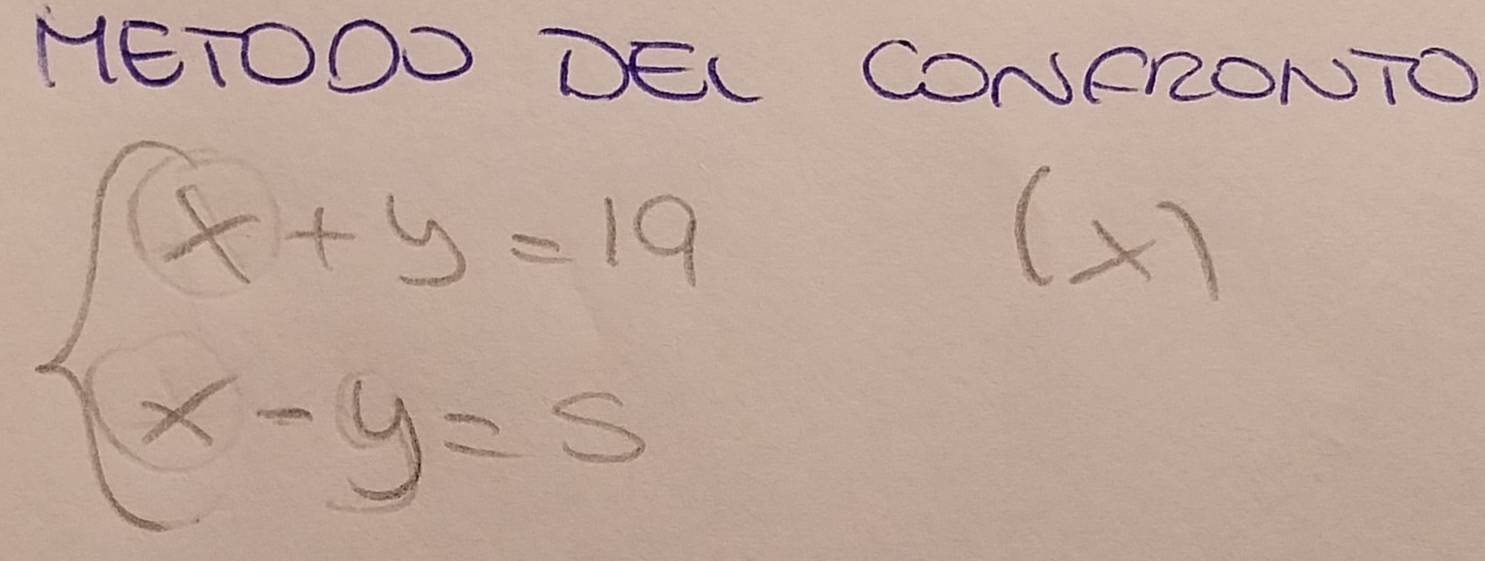 METODO DEL CONFRONTO
x + y = 19 (x)
x - y = 5